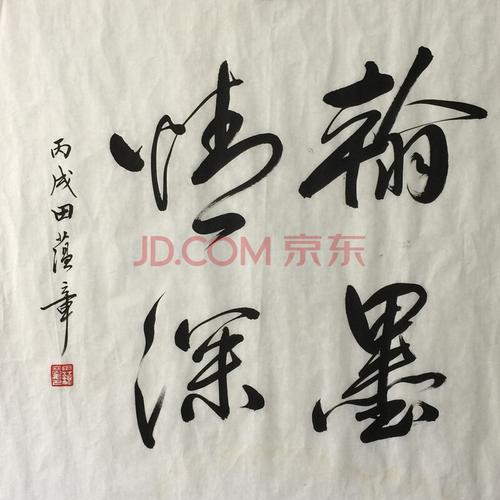 翰墨
情深
丙戌田蕴章
JD.COM 京东